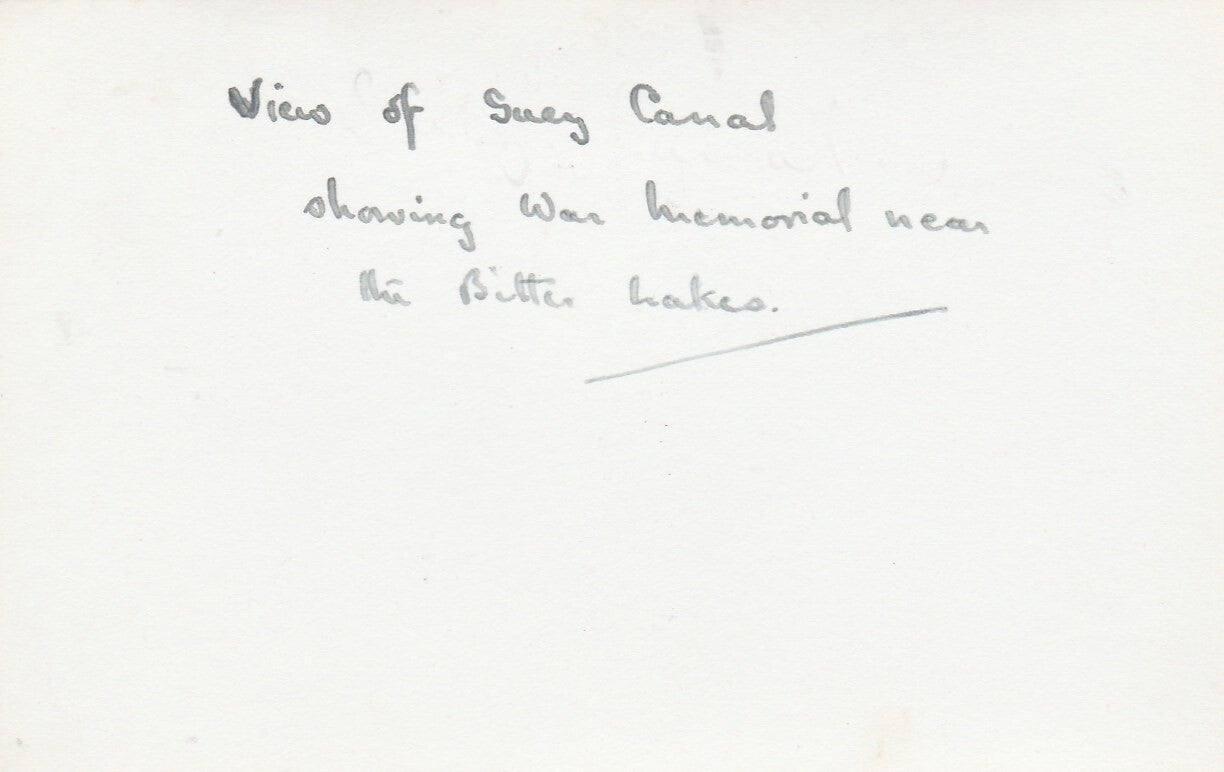 View of Suez Canal
showing War Memorial near
the Bitter Lakes.